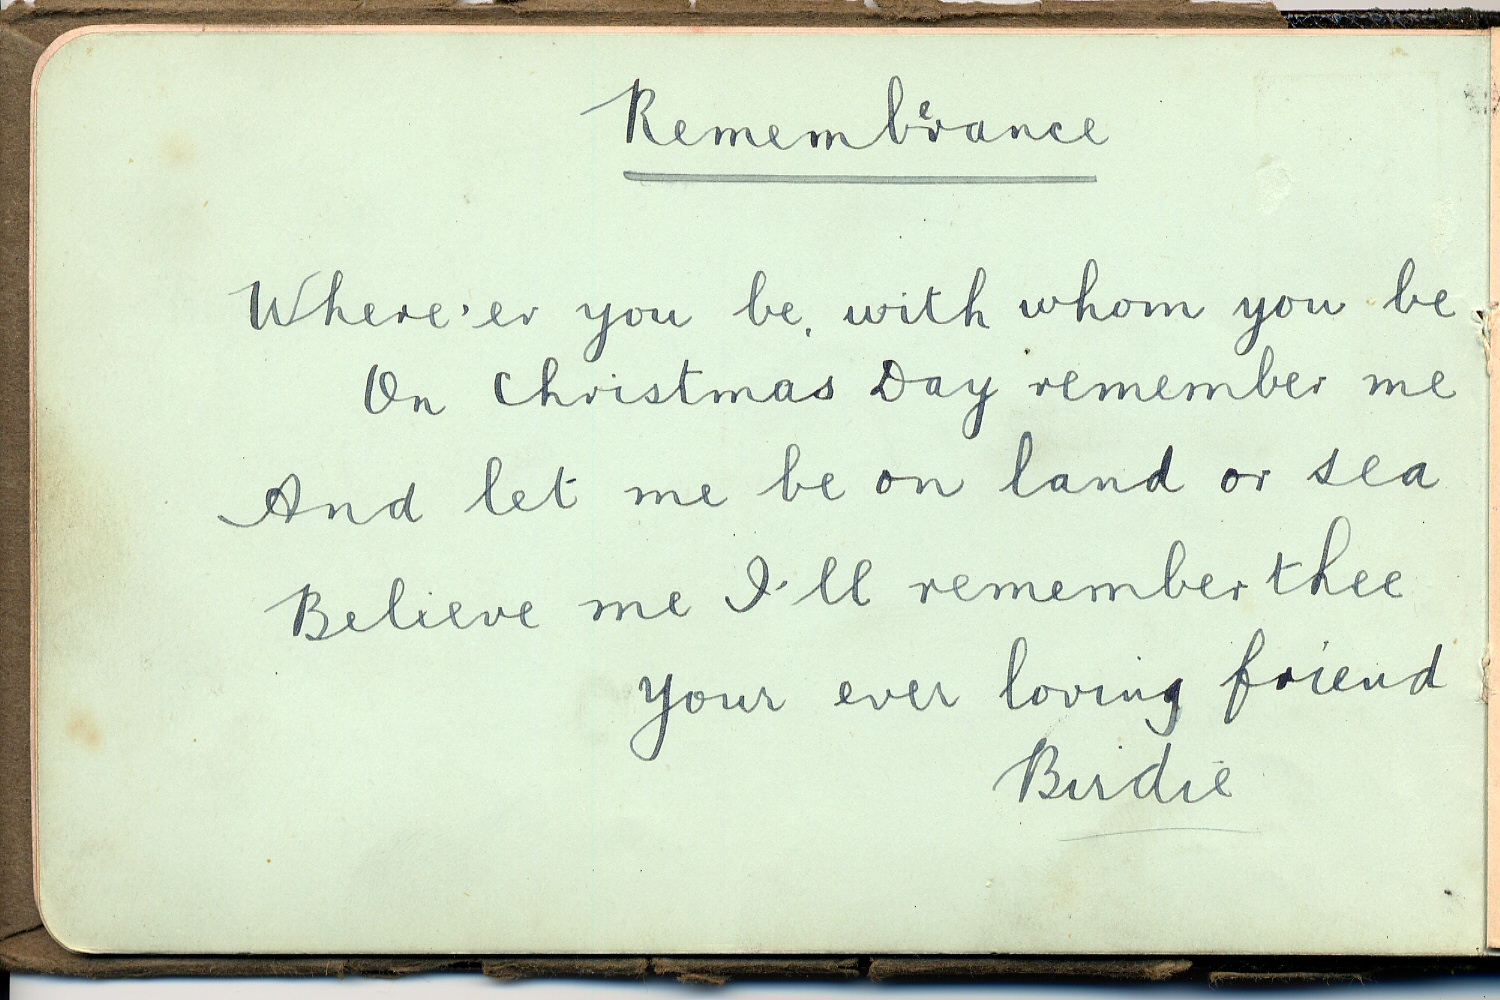 Rememberance
Where'er you be, with whom you be
On Christmas Day remember me
And let me be on land or sea
Believe me I'll remember thee
Your ever loving friend
Birdie